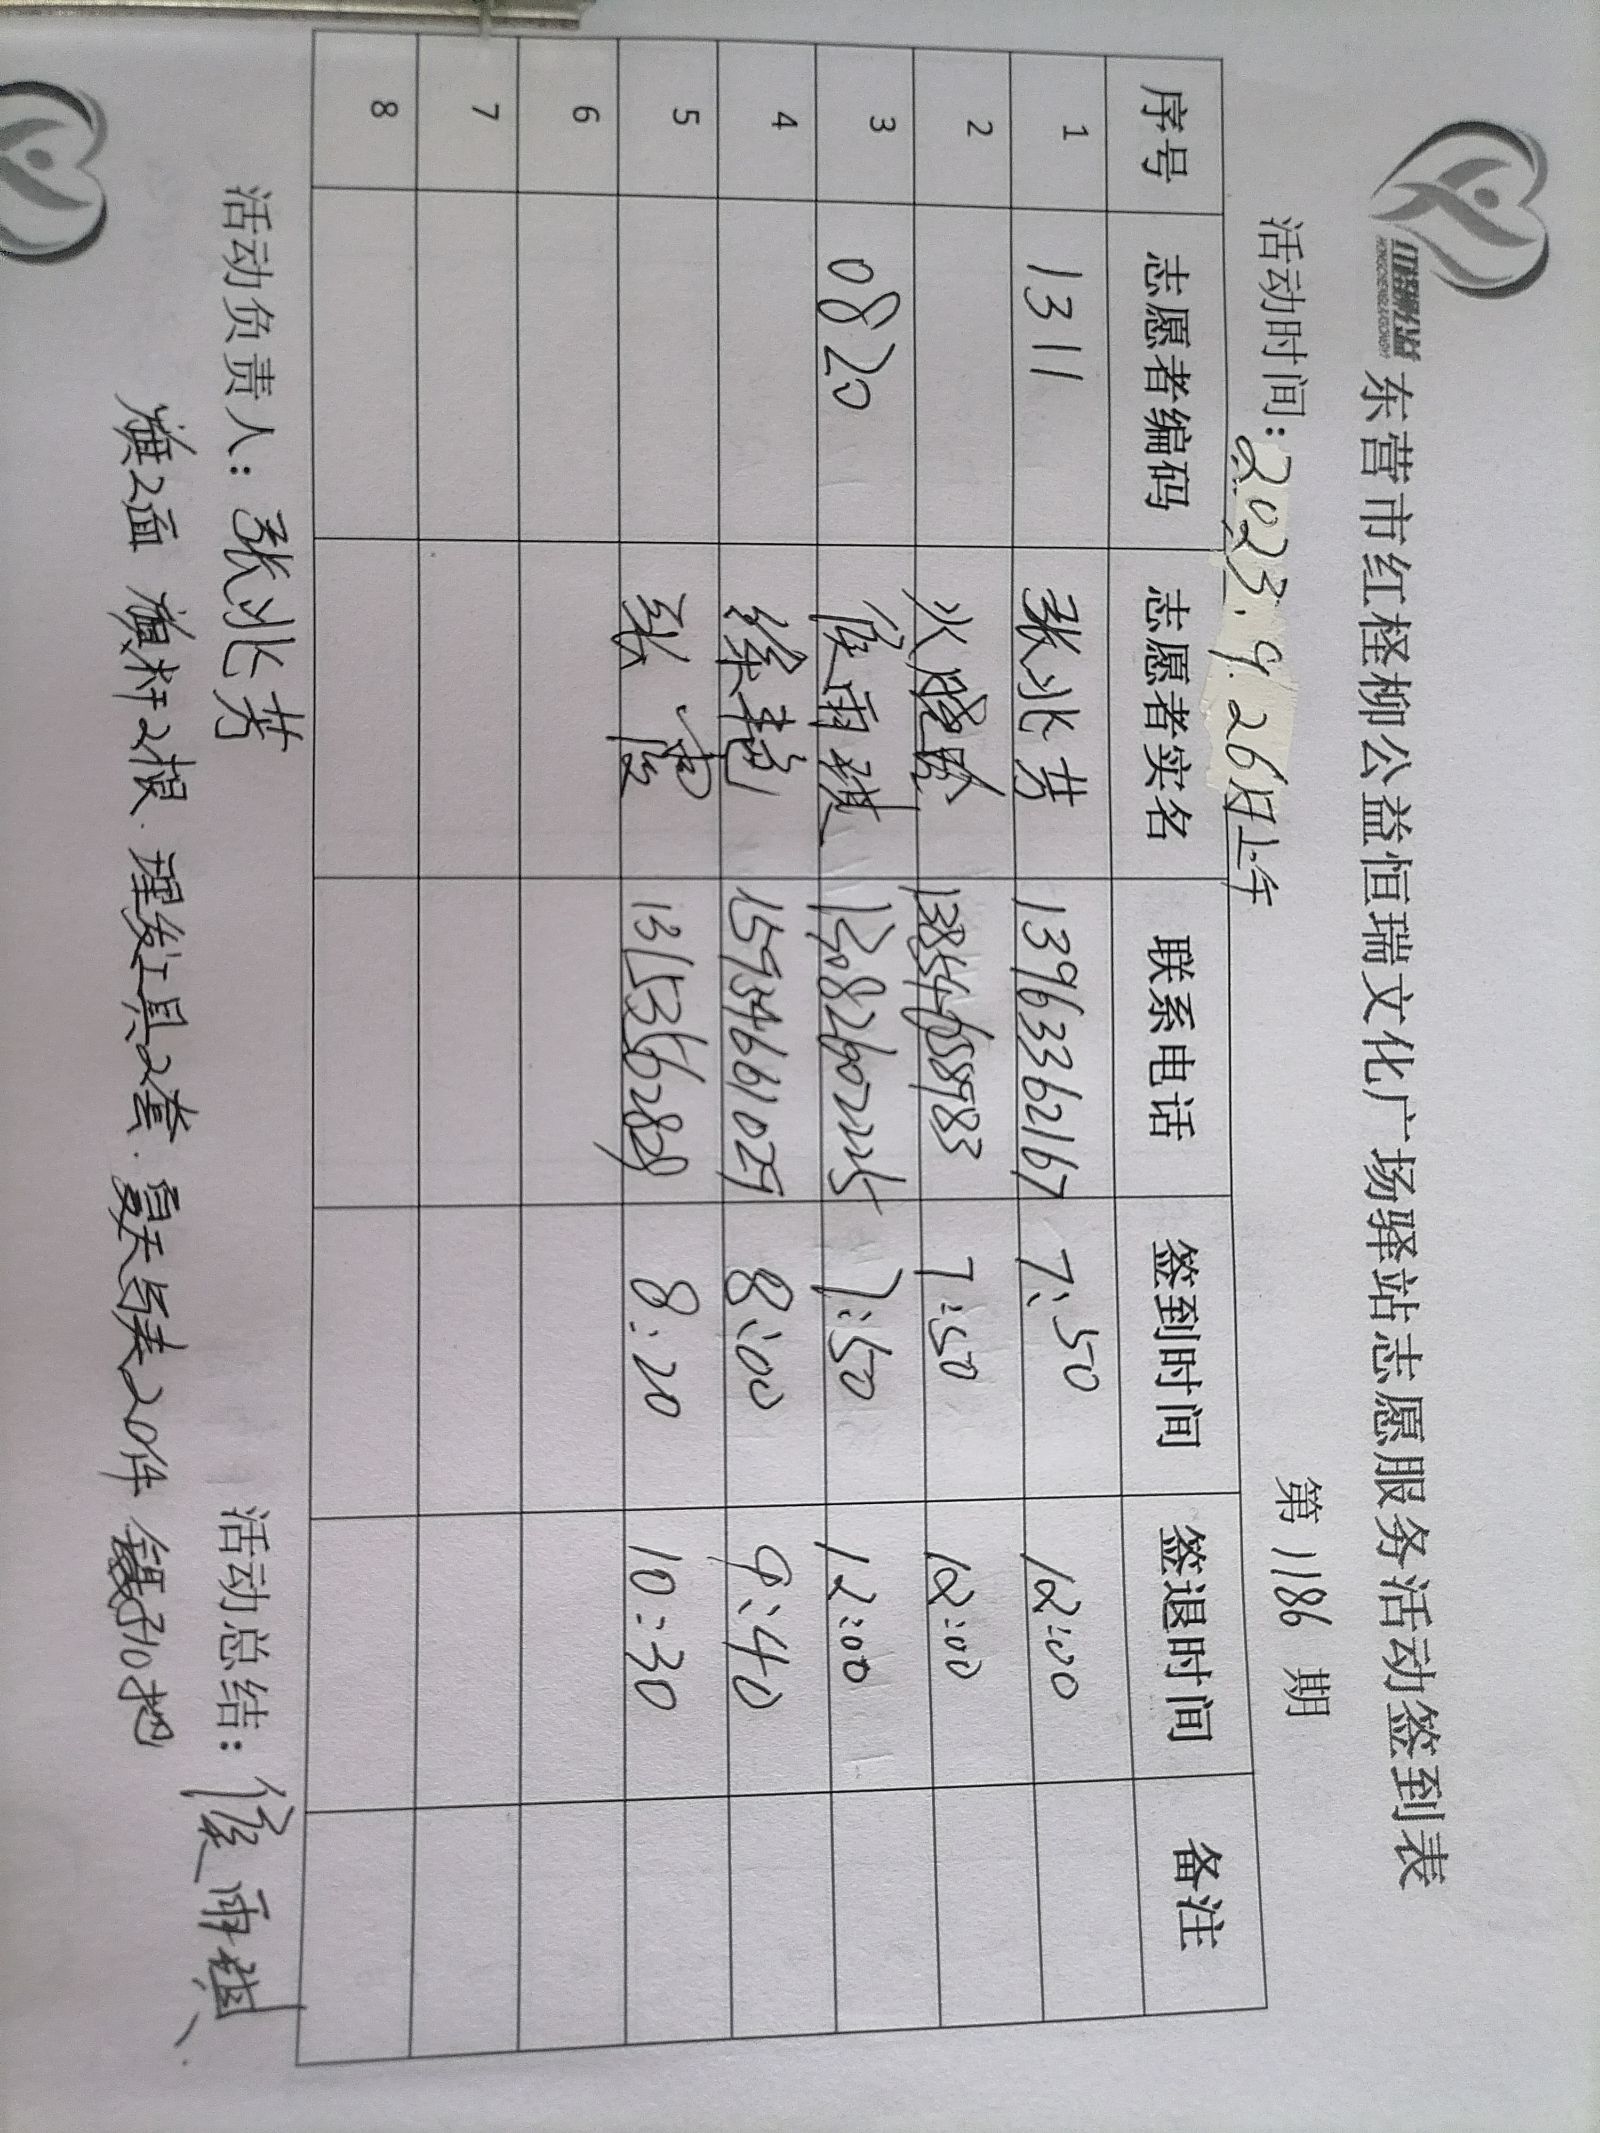 红柽柳公益
东营市红柽柳公益恒瑞文化广场驿站志愿服务活动签到表
活动时间：2023.9.26日上午 第 1186 期
序号 志愿者编码 志愿者实名 联系电话 签到时间 签退时间 备注
1 1311 张兆芳 13963362167 7:50 12:00
2 7:50 12:00
3 0820 侯雨祺 7:50 12:00
4 徐艳 15734661029 8:00 9:40
5 张霞 8:20 10:30
6
7
8
活动负责人：张兆芳 活动总结：侯雨祺
旗2面 旗杆2根. 理发工具2套. 夏天马夹20件 镊子10把